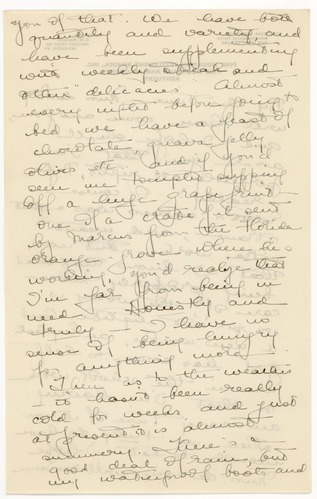 you of that. We have both
quantity and variety, and
have been supplementing
with weekly steak and
other "delicacies. Almost
every night before going to
bed we have a feast of
chocolate, guava jelly,
olives etc. and if you'd
seen me tonight supping
off a huge grapefruit -
one of a crate full sent
by Marcus from the Florida
orange grove where he's
working, you'd realize that
I'm far from being in
need. Honestly and
truly - I have no
sense of being hungry
for anything more -
Then as to the weather
- it hasn't been really
cold for weeks and just
at present is almost
summery. There's a
good deal of rain, but
my waterproof boots and